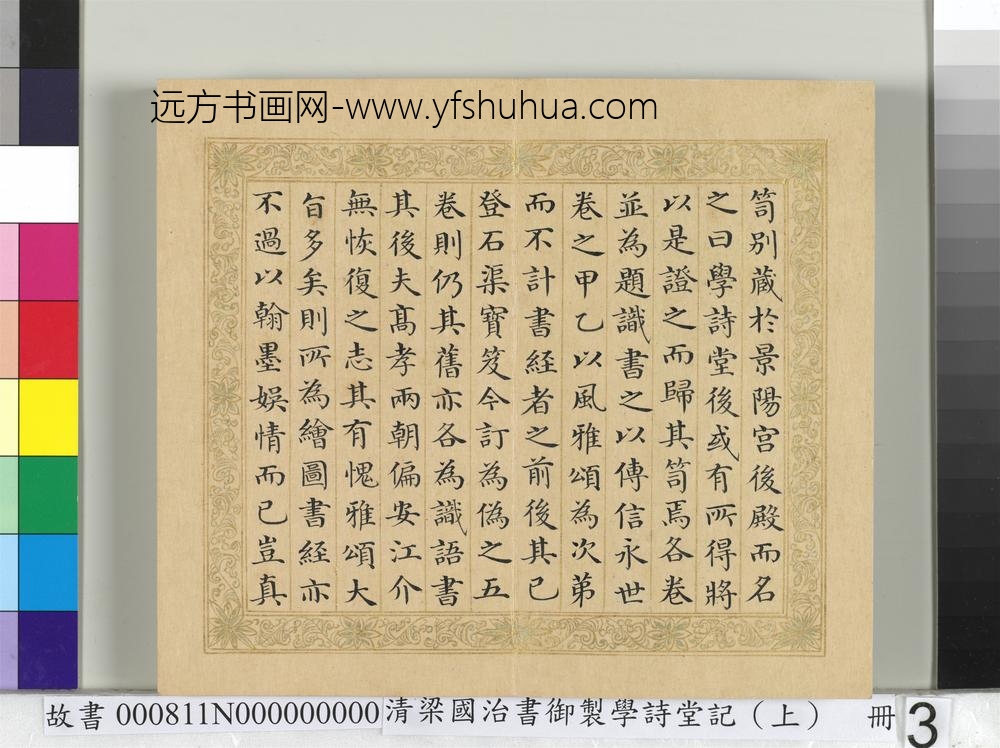 远方书画网-www.yfshuhua.com
笥别蔵於景陽宫後殿而名
之曰學詩堂後或有所得將
以是證之而歸其笥焉各卷
並為題識書之以傳信永世
卷之甲乙以風雅頌為次第
而不計書経者之前後其已
登石渠寶笈今訂為偽之五
卷則仍其舊亦各為識語書
其後夫髙孝兩朝偏安江介
無恢復之志其有愧雅頌大
旨多矣則所為繪圖書経亦
不過以翰墨娛情而已豈真
故書 000811N000000000 清梁國治書御製學詩堂記（上） 冊 3